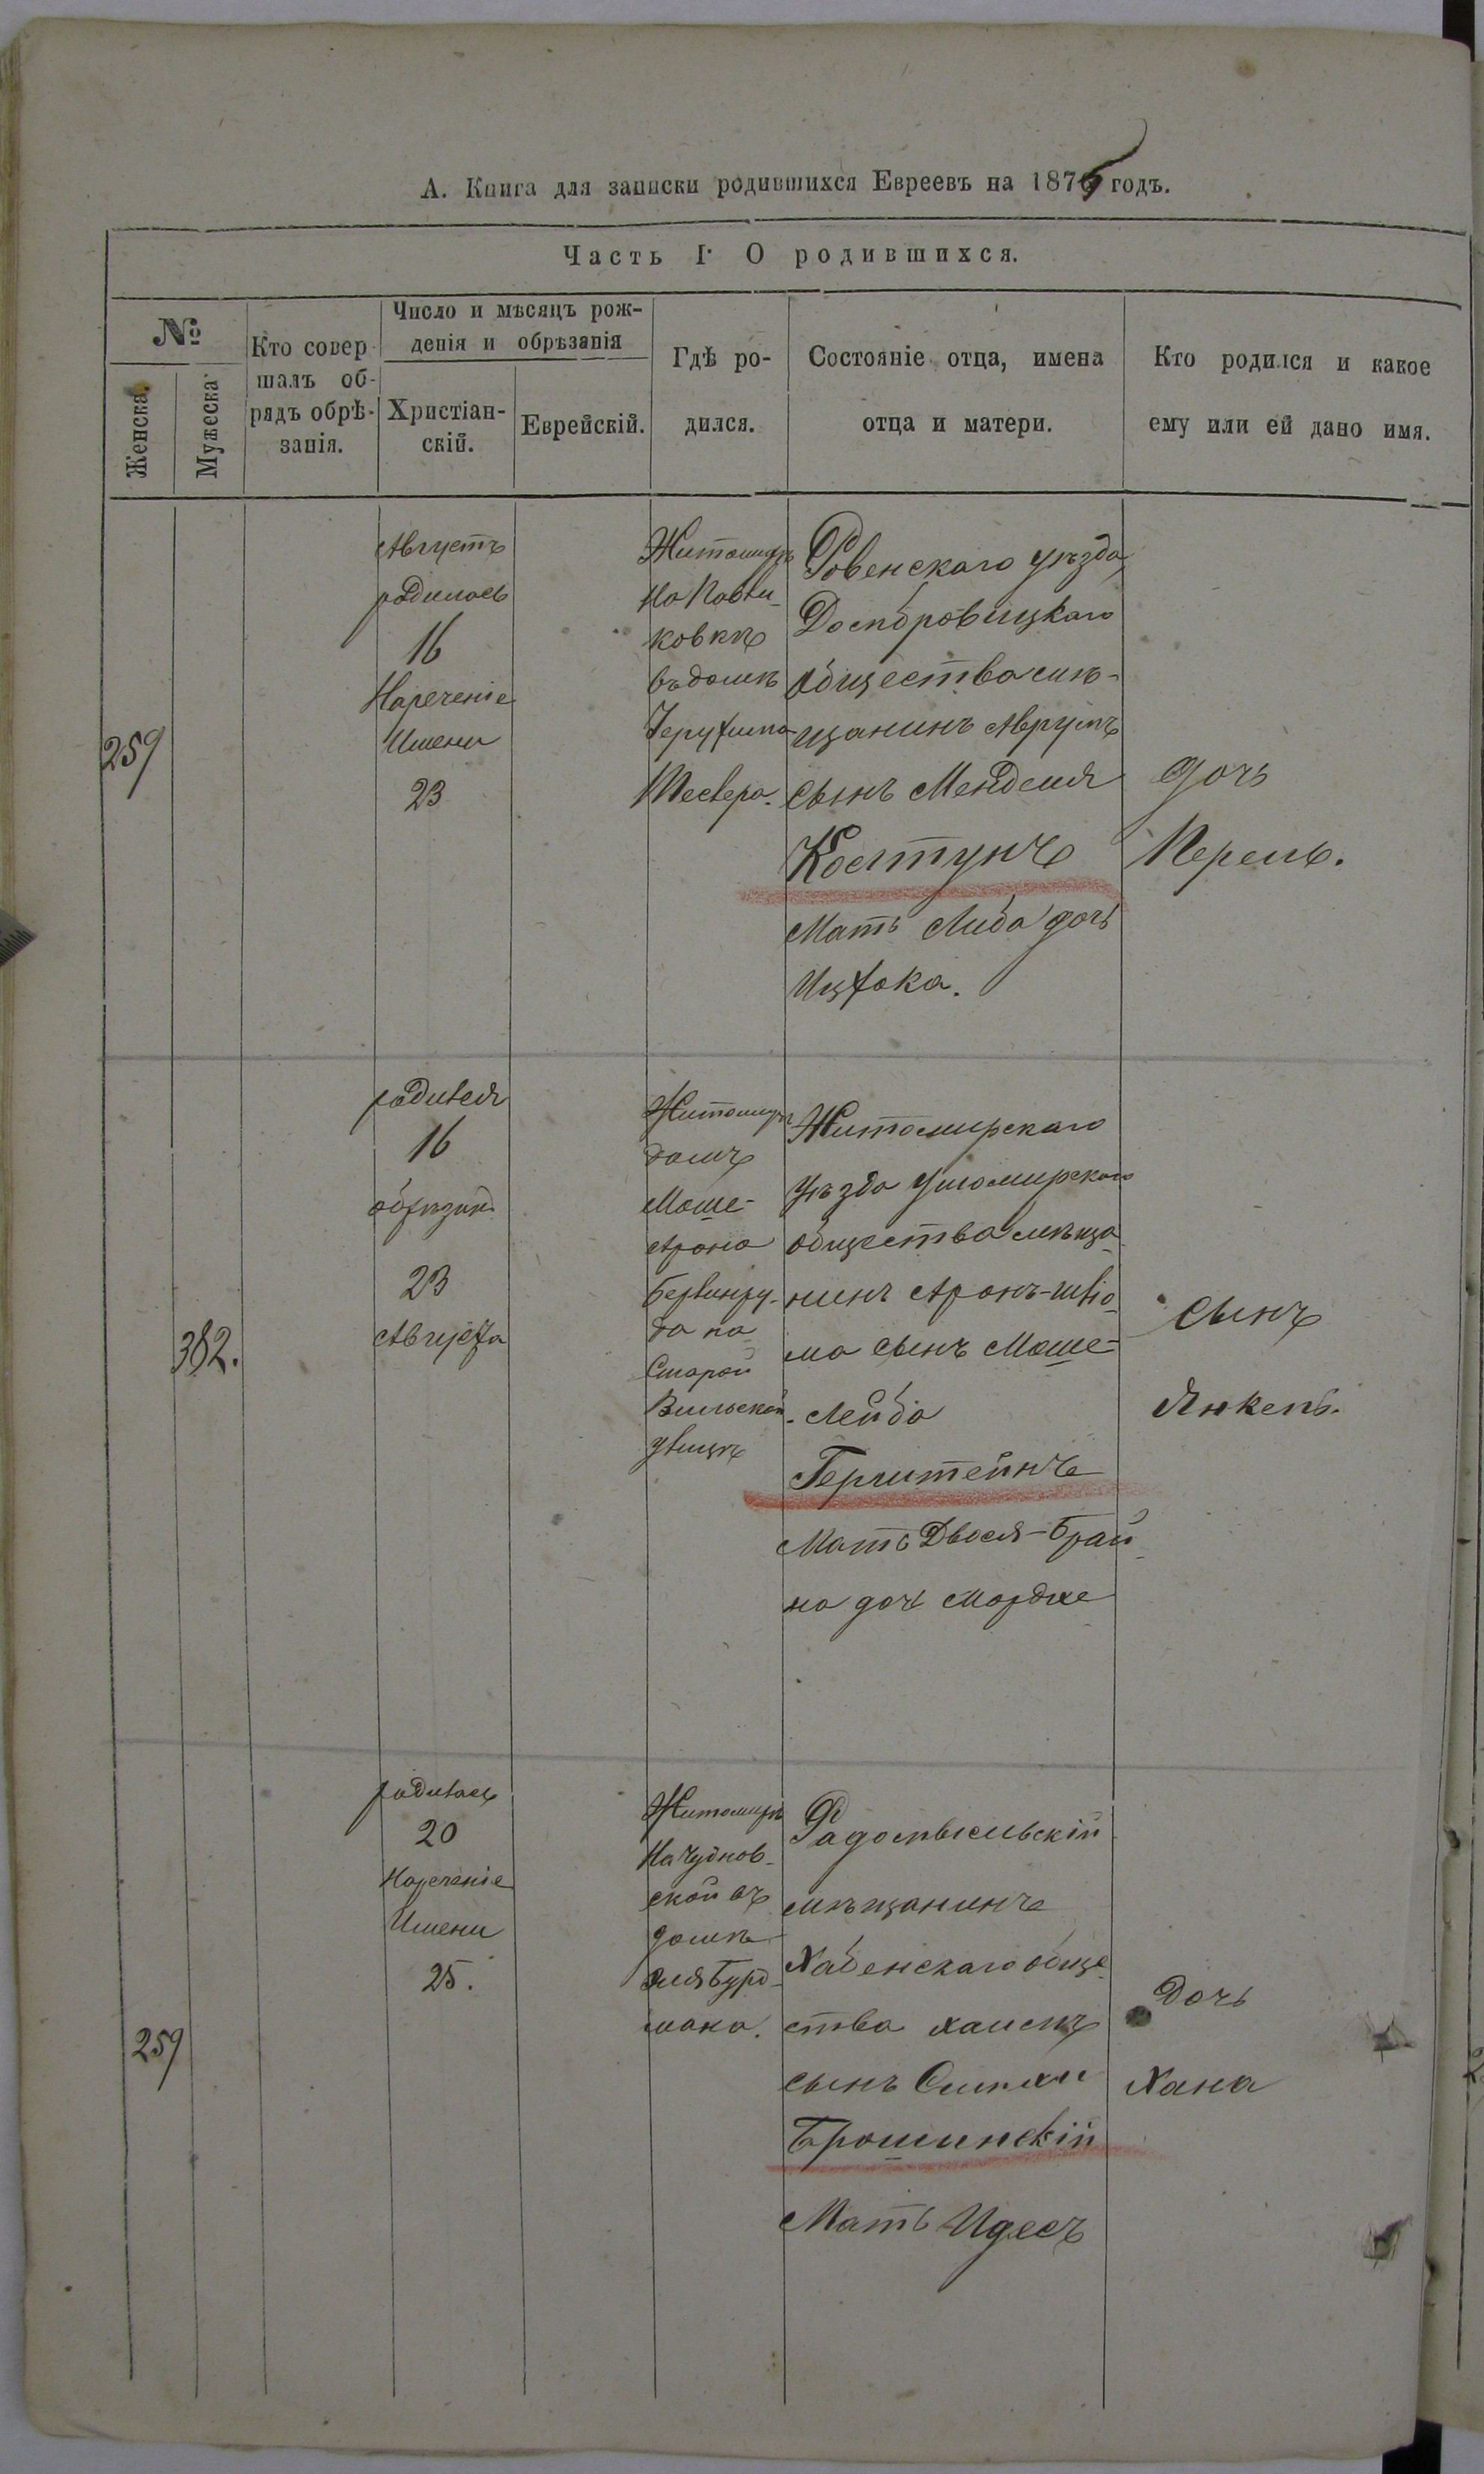 А. Книга для записки родившихся Евреевъ на 1875 годъ.
Часть I. О родившихся.
№
Женска.
Мужеска
Кто совер
шалъ об-
рядъ обрѣ-
занія.
Число и мѣсяцъ рож-
денія и обрѣзанія
Христіан-
скій.
Еврейскій.
Гдѣ ро-
дился.
Состояніе отца, имена
отца и матери.
Кто родился и какое
ему или ей дано имя.
259
Августъ
родилась
16
Нареченіе
Имени
23
Житомиръ
На Павли-
ковкѣ
въ домѣ
Ровенскаго уѣзда
Домбровицкаго
общества мѣ-
щанинъ Аврумъ
сынъ Менделя
Колтунъ
Мать Либа дочь
Ицхока.
дочь
Перель.
382.
родился
16
обрѣзан
23
Августа
Житомиръ
домъ
Моше-
Арона
на
Старой
Вильской
улицѣ
Житомирскаго
уѣзда Ушомирскаго
общества мѣща
нинъ Аронъ-Шліо-
ма сынъ Моше-
Лейба
Герштейнъ
Мать Двося-Брай
на доч Мордхе
Сынъ
Янкель.
259
родилась
20
Нареченіе
Имени
25.
Житомиръ
На Чуднов-
ской въ
домѣ
Радомысльскій
мѣщанинъ
Хабенскаго обще
ства Хаимъ
сынъ Симхи
Брошинскій
Мать Идесъ
Дочь
Хана